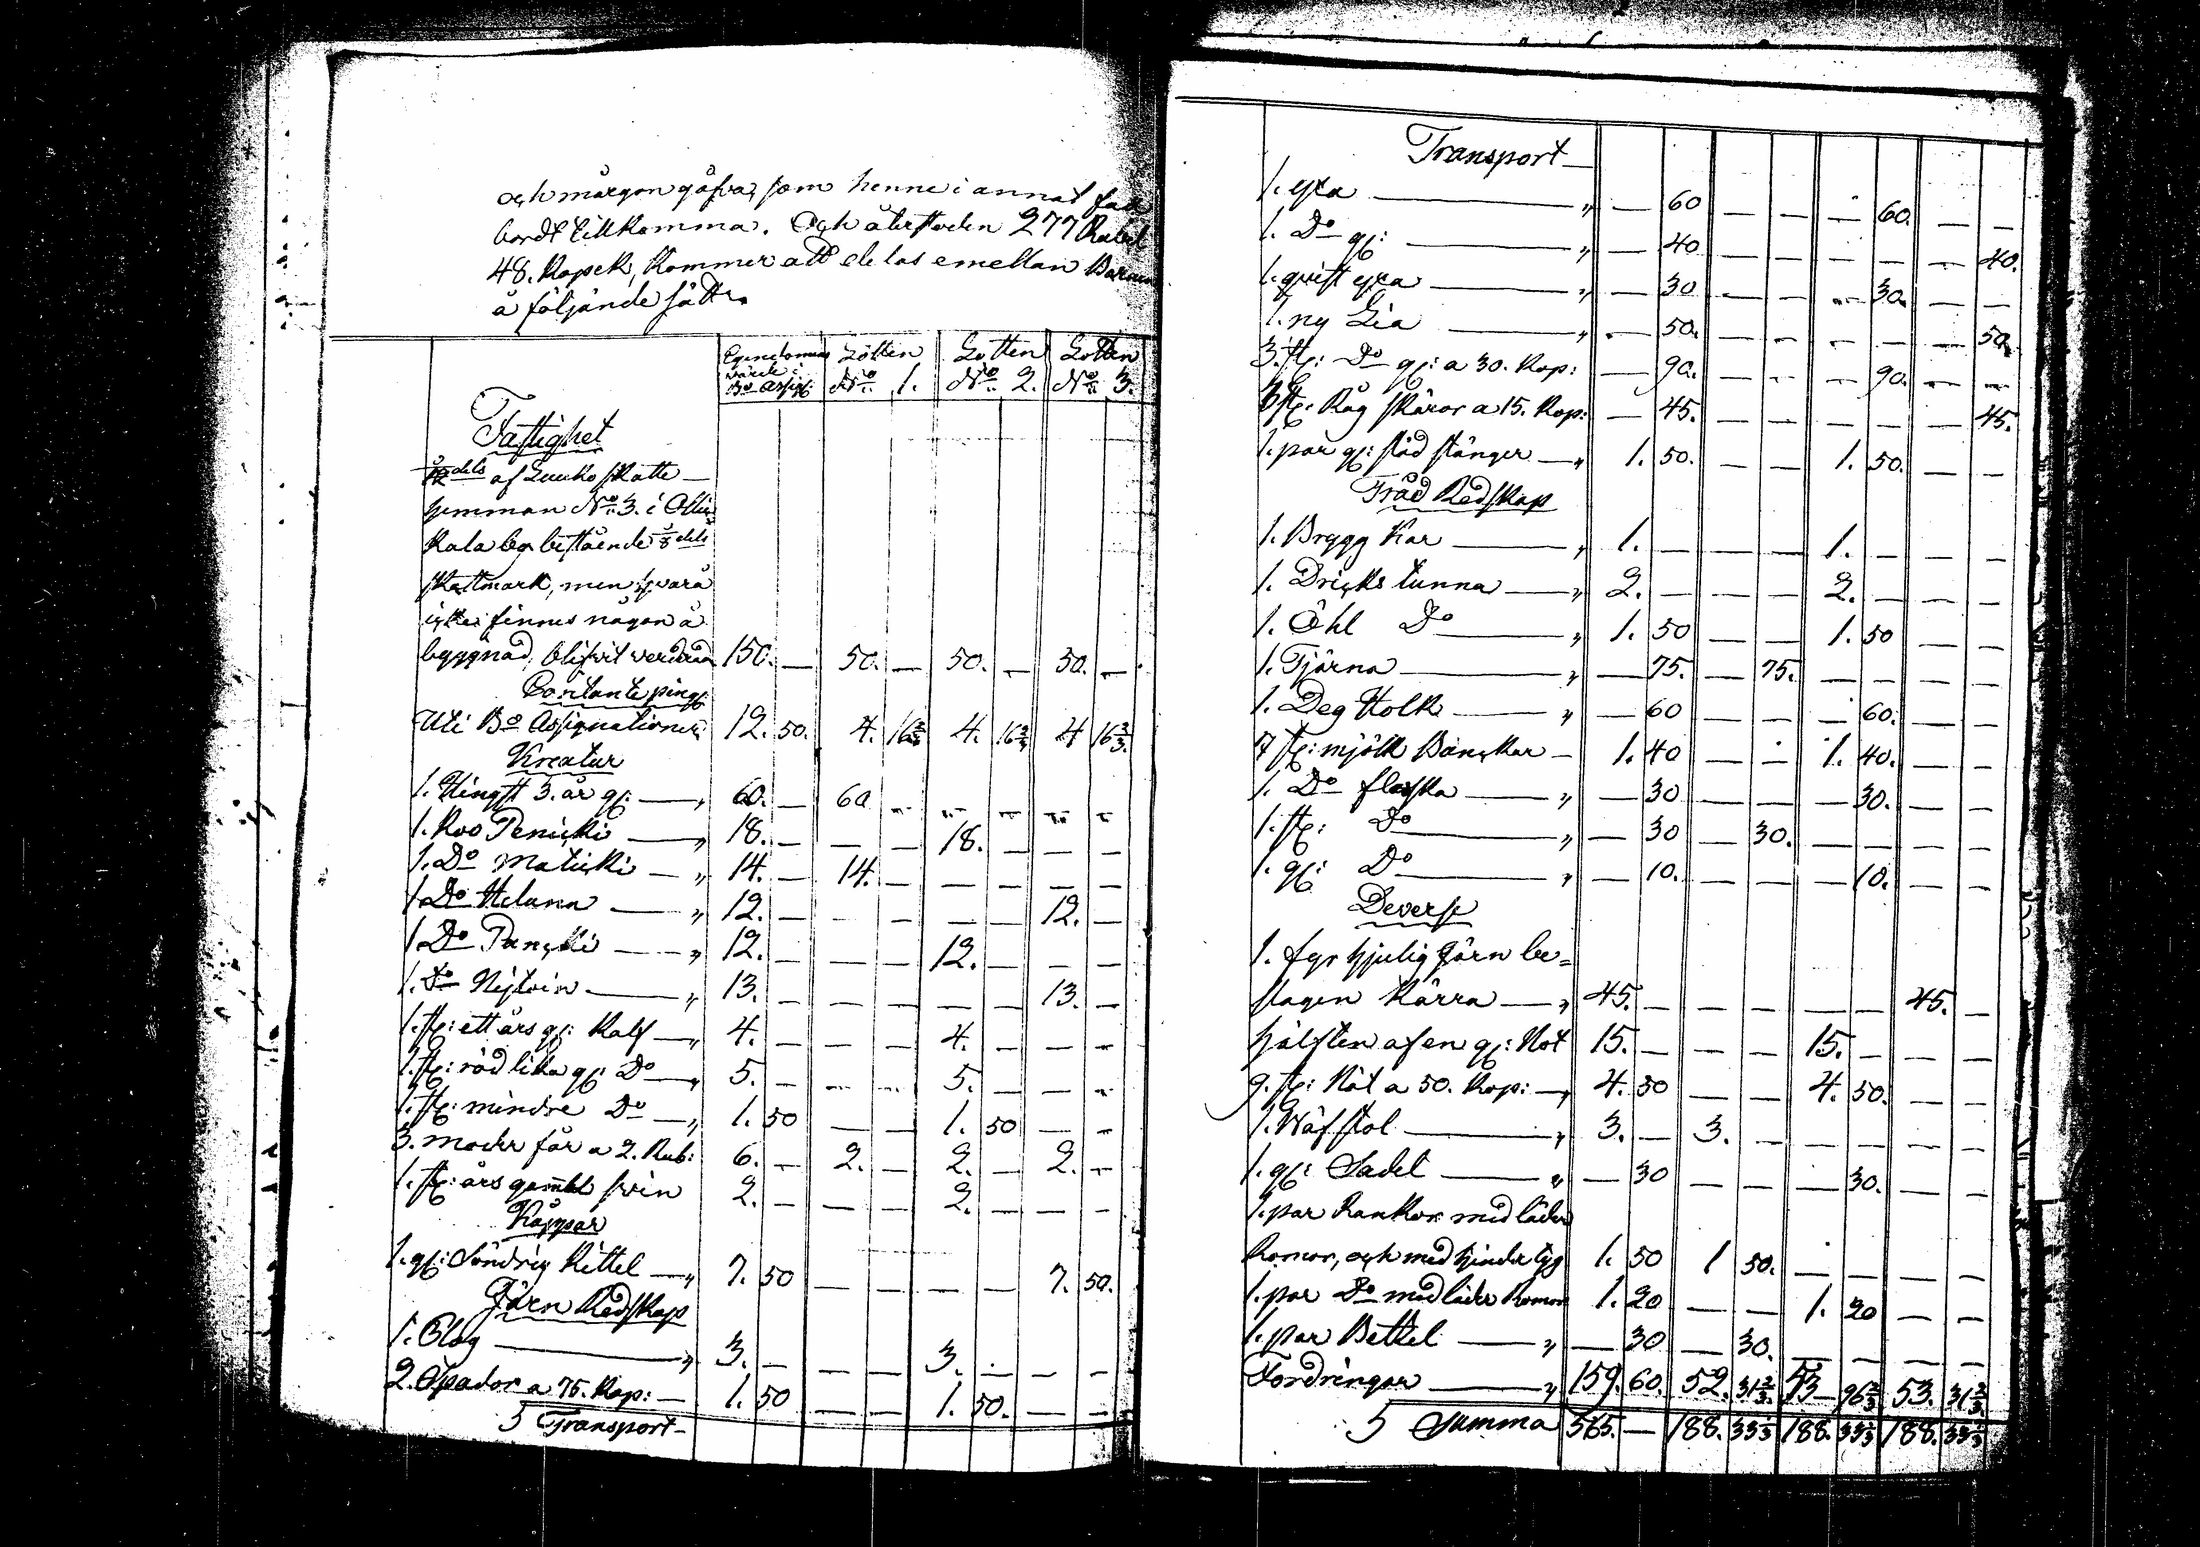 och morgon gåfva, som henne i annat fall
bordt tillkomma. Och återstoden 277 Rubel
48. Kopek, kommer att delas emellan Barnen
å följande sätt.
Egendomens värde i Bo Assign: Lotten No 1. Lotten No 2. Lotten No 3.
Fastighet
dels af Luuko skatte
hemman No 3. i
kala by bestående 1/8 dels
skattmark, men hvarå
icke finnes någon å
byggnad, blifvit värderad 150. — 50. — 50. — 50. —
Contante peng:
Uti Bo Assignationer 12. 50. 4. 16 2/3 4. 16 2/3 4 16 2/3.
Kreatur
1. Hingst 3. år g: — „ 60. — 60 — — — — —
1. Koo Penicki — „ 18. — — — 18. — — —
1. Do Maticki — „ 14. — 14. — — — — —
1 Do Heluna — „ 12. — — — — — 12. —
1 Do — „ 12. — — — 12. — — —
1. Do — „ 13. — — — — — 13. —
1. st: ett års g: Kalf — „ 4. — — — 4. — — —
1. st: röd lika g: Do — „ 5. — — — 5. — — —
1. st: mindre Do — „ 1. 50 — — 1. 50 — —
3. moder får a 2. Rub: 6. — 2. — 2. — 2. —
1. st: års gammal svin 2. — — — 2. — — —
Kåppar
1. g: Söndrig Kittel — „ 7. 50 — — — — 7. 50.
Järn Redskap
1. Plog — „ 3. — — — 3. — — —
2. Spador a 75. Kop: — 1. 50 — — 1. 50. — —
Transport
Transport
1. yxa — „ — 60 — — — 60. — —
1. Do g: — „ — 40 — — — — — 40.
1. qvist yxa — „ — 30 — — — 30. — —
1. ny Lia — „ — 50. — — — — — 50.
3. st: Do g: a 30. Kop: — 90. — — — 90. — —
3 st: Råg skäror a 15. Kop: — 45. — — — — — 45.
1. par g: släd stänger — „ 1. 50. — — 1. 50. — —
Träd Redskap
1. Brygg Kar — „ 1. — — — 1. — — —
1. Dricks tunna — „ 2. — — — 2. — — —
1. Öhl Do — „ 1. 50 — — 1. 50 — —
1. Tjärna — „ — 75. — 75. — — — —
1. Deg Holk — „ — 60 — — — 60. — —
7 st: mjölk Bunckar — 1. 40 — — 1. 40. — —
1. Do flaska — „ — 30 — — — 30. — —
1. st: Do — „ — 30 — 30. — — — —
1. g: Do — „ — 10. — — — 10. — —
Deverse
1. fyr hjulig Järn be=
slagen Kärra — „ 45. — — — — — 45. —
hälften af en g: Not 15. — — — 15. — — —
9. st: Nät a 50. Kop: — „ 4. 50 — — 4. 50. — —
1. Wäfstol — „ 3. — 3. — — — — —
1. g: Sadel — „ — 30 — — — 30. — —
1. par Rankor med läder
Romor, och med hinder tyg 1. 50 1 50. — — — —
1. par Do med läder Romor 1. 20 — — 1. 20 — —
1. par Bettel — „ — 30 — 30. — — — —
Fordringar — „ 159. 60. 52. 31 2/3. 53 — 96 2/3 53. 31 2/3.
Summa 565. — 188. 33 1/3 188. 33 1/3 188. 33 1/3